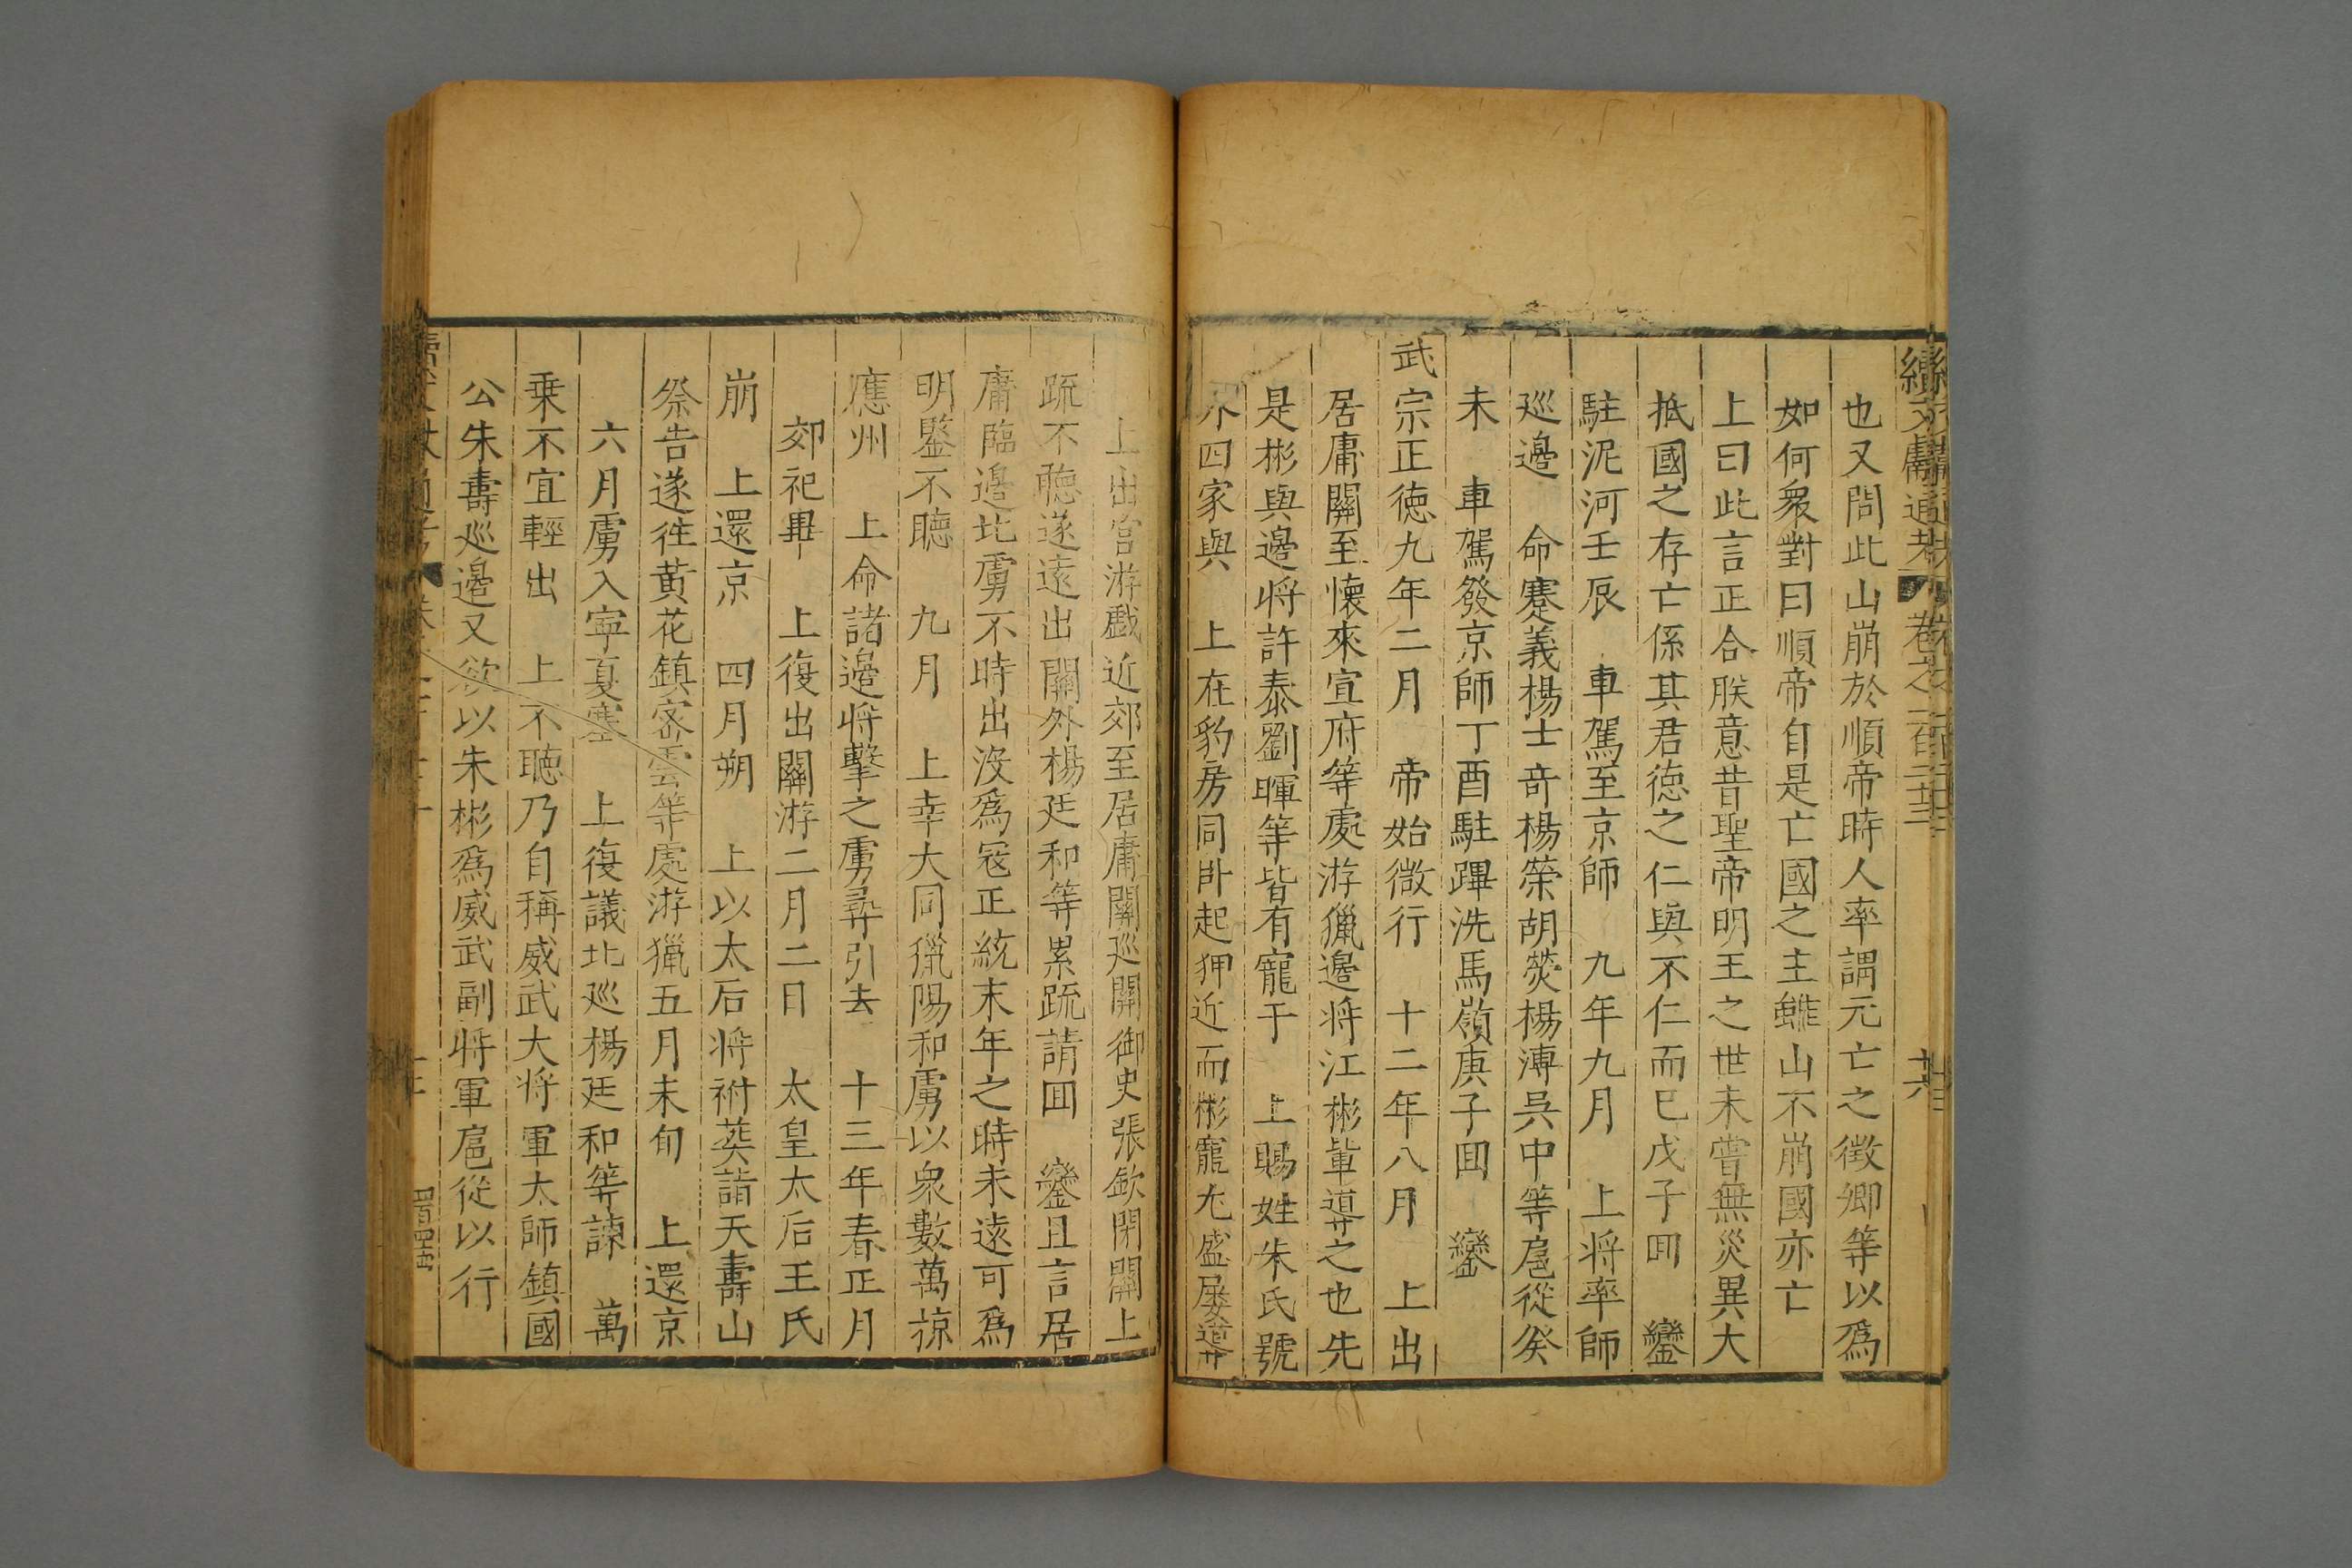 續文獻通考 卷之一百二十三
也又問此山崩於順帝時人率謂元亡之徵卿等以爲
如何衆對曰順帝自是亡國之主雖山不崩國亦亡
上曰此言正合朕意昔聖帝明王之世未嘗無災異大
抵國之存亡係其君德之仁與不仁而已戊子囬 鑾
駐泥河壬辰 車駕至京師 九年九月 上將率師
巡邊 命蹇義楊士竒楊榮胡濙楊溥吳中等扈從癸
未 車駕發京師丁酉駐蹕洗馬嶺庚子囬 鑾
武宗正德九年二月 帝始微行 十二年八月 上出
居庸關至懷來宣府等處游獵邊將江彬軰導之也先
是彬與邊將許泰劉暉等皆有寵于 上賜姓朱氏號
外四家與 上在豹房同卧起狎近而彬寵尤盛屡導
上出宫游戲近郊至居庸關廵關御史張欽閉關上
疏不聽遂遠出關外楊廷和等累疏請囬 鑾且言居
庸臨邊北虜不時出没爲宼正統末年之時未遠可爲
明鑒不聽 九月 上幸大同獵陽和虜以衆數萬掠
應州 上命諸邊將擊之虜尋引去 十三年春正月
郊祀畢 上復出關游二月二日 太皇太后王氏
崩 上還京 四月朔 上以太后將祔葬詣天壽山
祭告遂徃黄花鎮宻雲等處游獵五月末旬 上還京
六月虜入寧夏塞 上復議北廵楊廷和等諫 萬
乗不宜輕出 上不聽乃自稱威武大將軍太師鎮國
公朱壽廵邊又欲以朱彬爲威武副將軍扈從以行